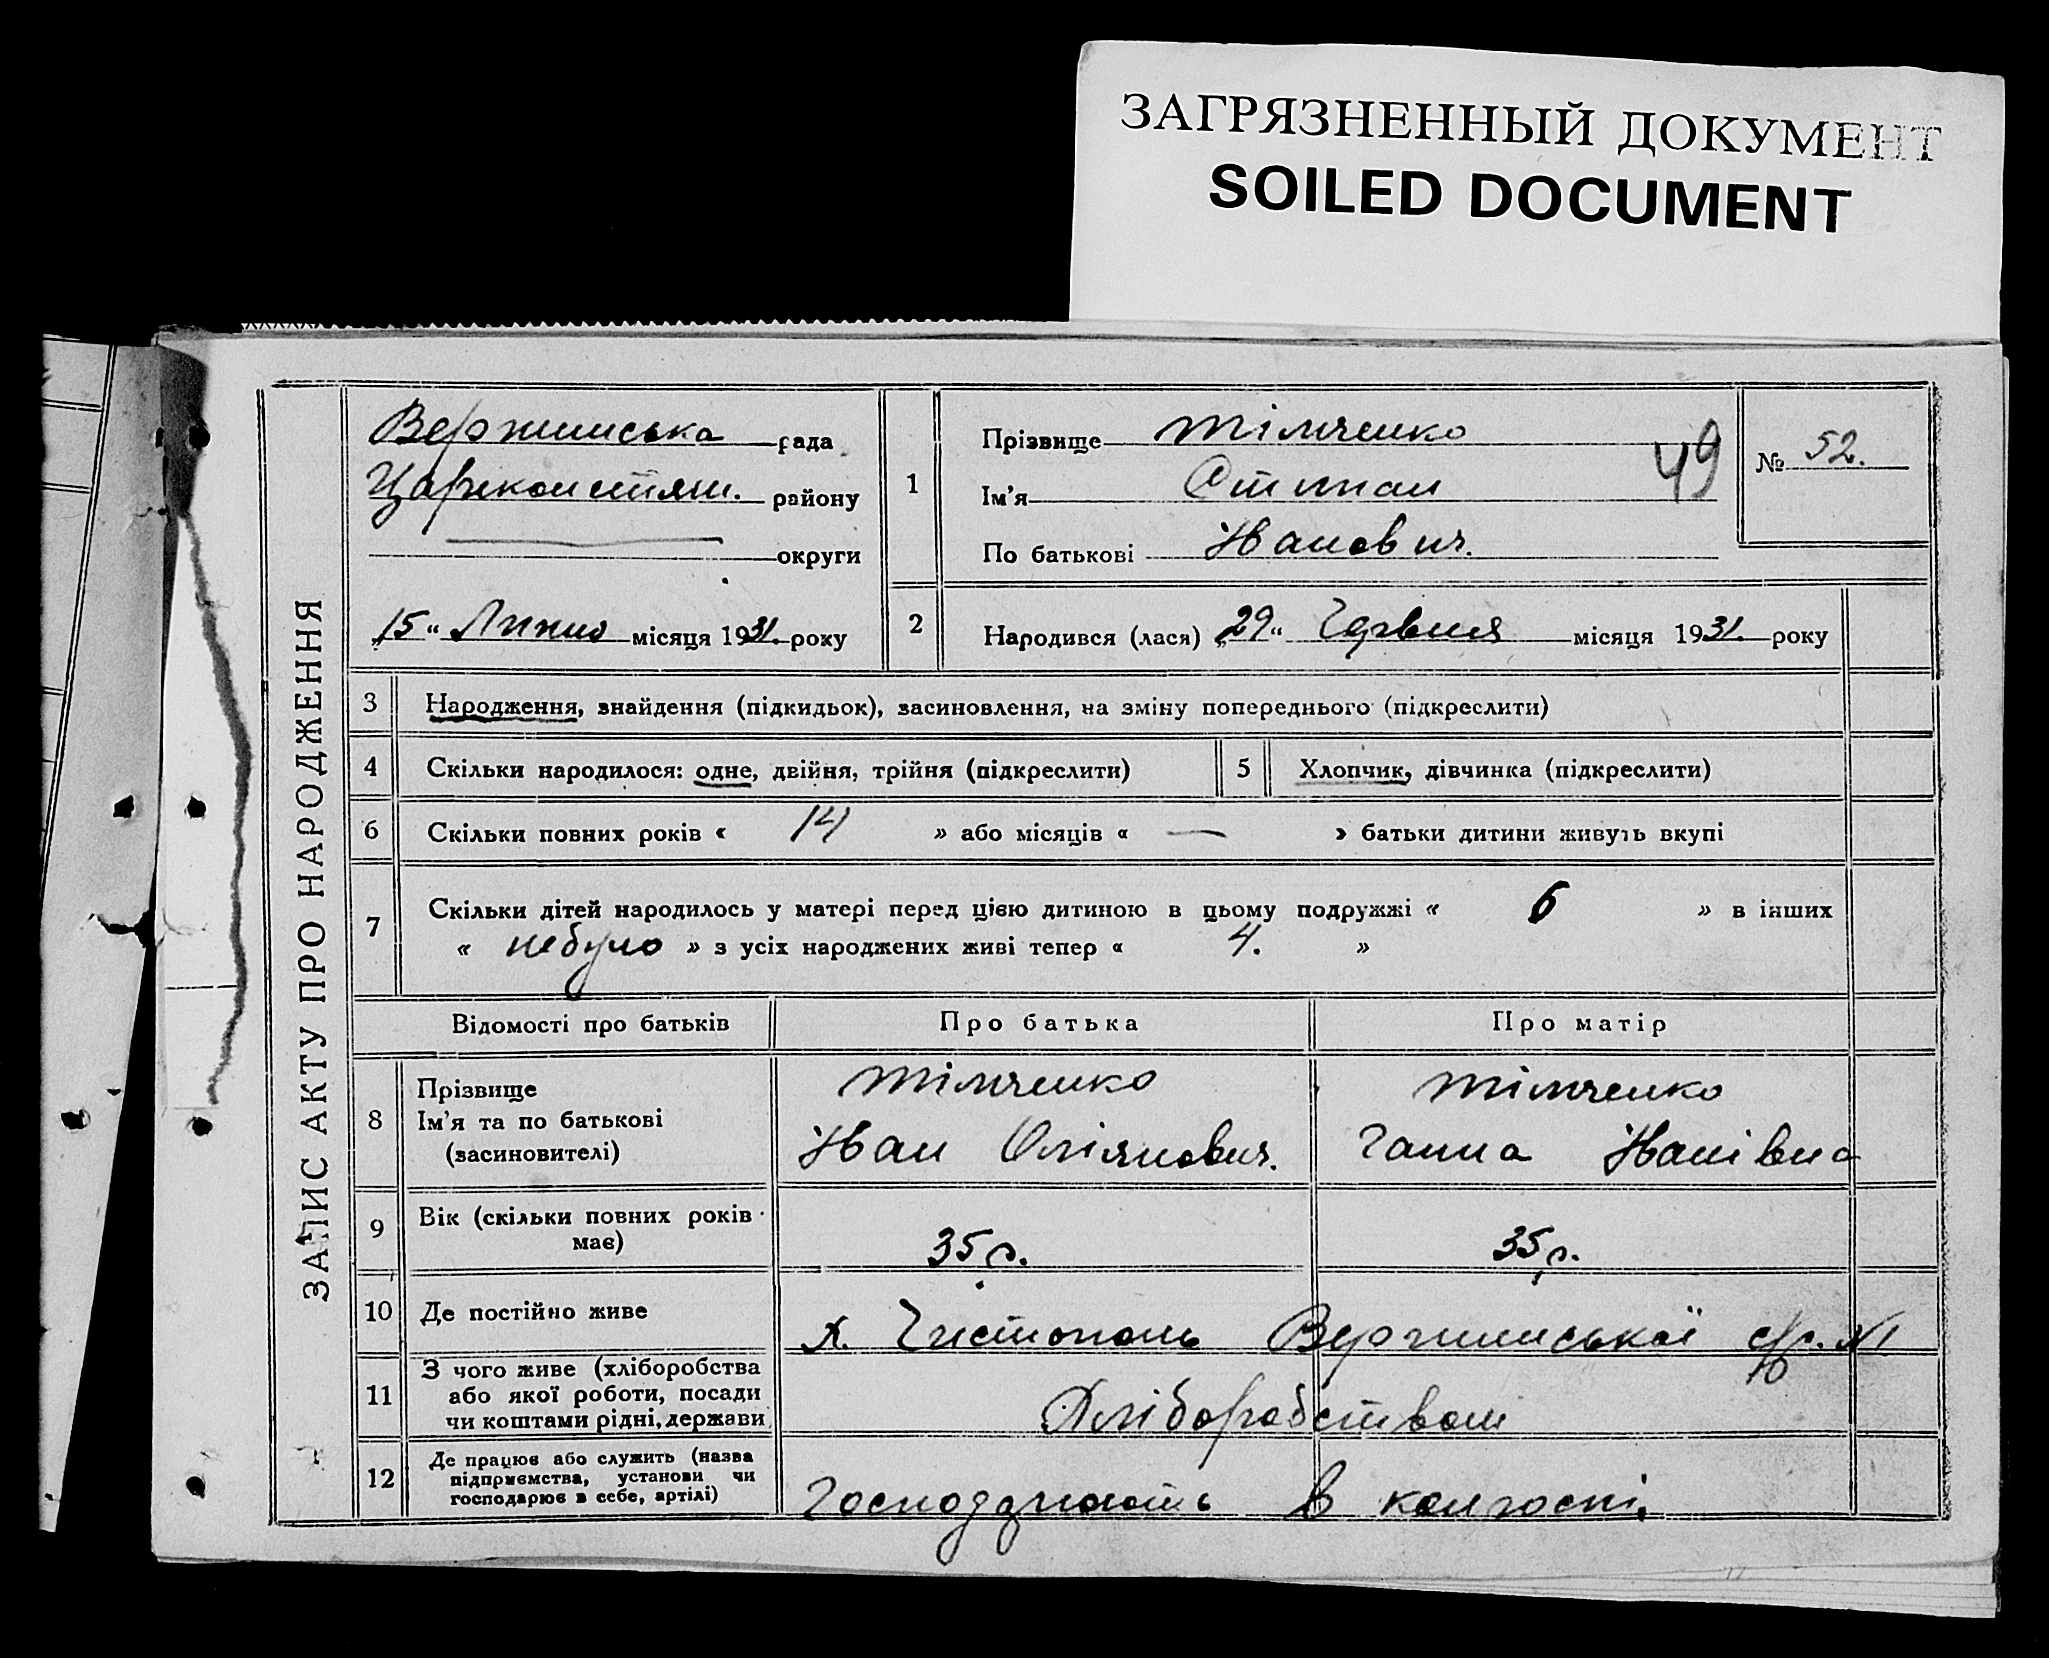 ЗАГРЯЗНЕННЫЙ ДОКУМЕНТ
SOILED DOCUMENT
ЗАПИС АКТУ ПРО НАРОДЖЕННЯ
рада
Царекостян. району
округи
„15“ Липня місяця 1931 року
1
Прізвище Тімченко
49
Ім'я Степан
По батькові Іванович.
№ 52.
2 Народився (лася) „29“ Червня місяця 1931. року
3 Народження, знайдення (підкидьок), засиновлення, на зміну попереднього (підкреслити)
4 Скільки народилося: одне, двійня, трійня (підкреслити) 5 Хлопчик, дівчинка (підкреслити)
6 Скільки повних років « 14 » або місяців « — » батьки дитини живуть вкупі
7 Скільки дітей народилось у матері перед цією дитиною в цьому подружжі « 6 » в інших
« небуло » з усіх народжених живі тепер « 4. »
Відомості про батьків Про батька Про матір
8 Прізвище Тімченко Тімченко
Ім'я та по батькові Іван Ганна Іванівна
(засиновителі)
9 Вік (скільки повних років має) 35 р. 35 р.
10 Де постійно живе х. Чистополь с/р. №1
11 З чого живе (хліборобства
або якої роботи, посади
чи коштами рідні, держави Хліборобством
12 Де працює або служить (назва
підприємства, установи чи
господарює в себе, артілі) Господарюють в колгоспі.